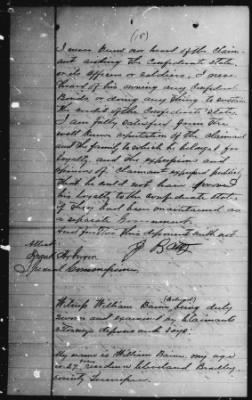 (15)
I never knew nor heard of the claim-
ant aiding the Confederate state,
or its officers or soldiers, I never
heard of his owning any Confed
Bonds or doing any thing to sustain
the credit of the Confederate States
I am fully satisfied from the
well known reputation of the claimant
and the family to which he belonged for
loyalty and the expression and
opinions of claimant expressed publicly
that he could not have proved
his loyalty to the confederate state
if they had been maintained as
a seperate Government.
And further this deponent saith not
Attest
J Batt
Special Commissioner
Witness William Bain being duly
sworn and examined by Claimants
attorney deposes and says.
My name is William Bain, my age
is 27, residence Cleveland Bradley
county Tennessee.